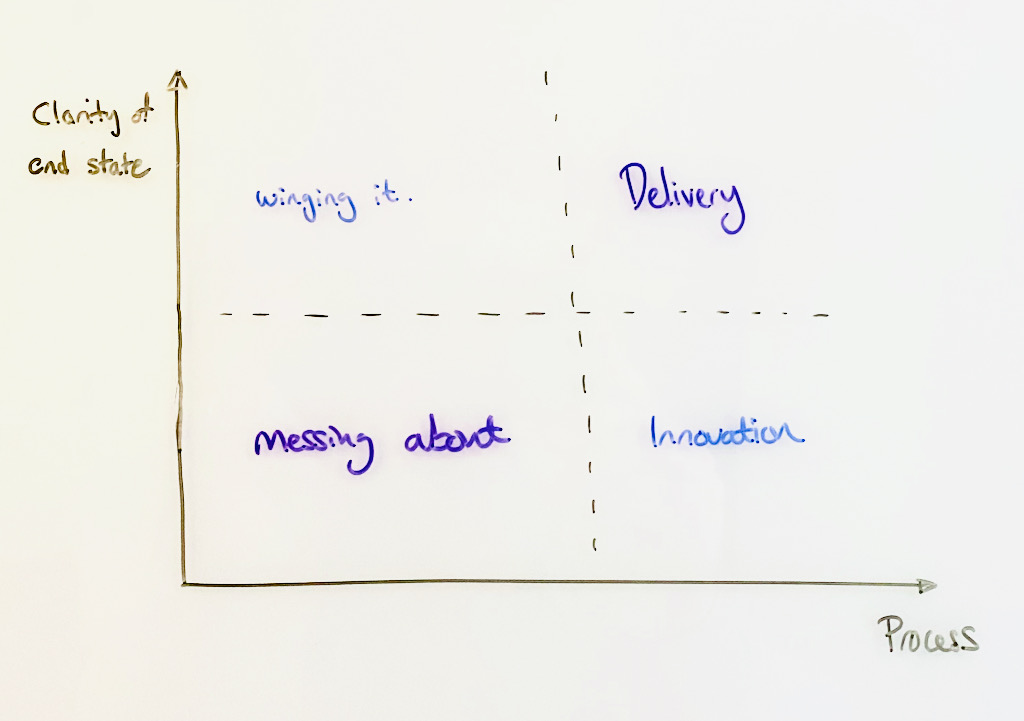 Clarity of
end state
winging it.
Delivery
messing about
Innovation
Process